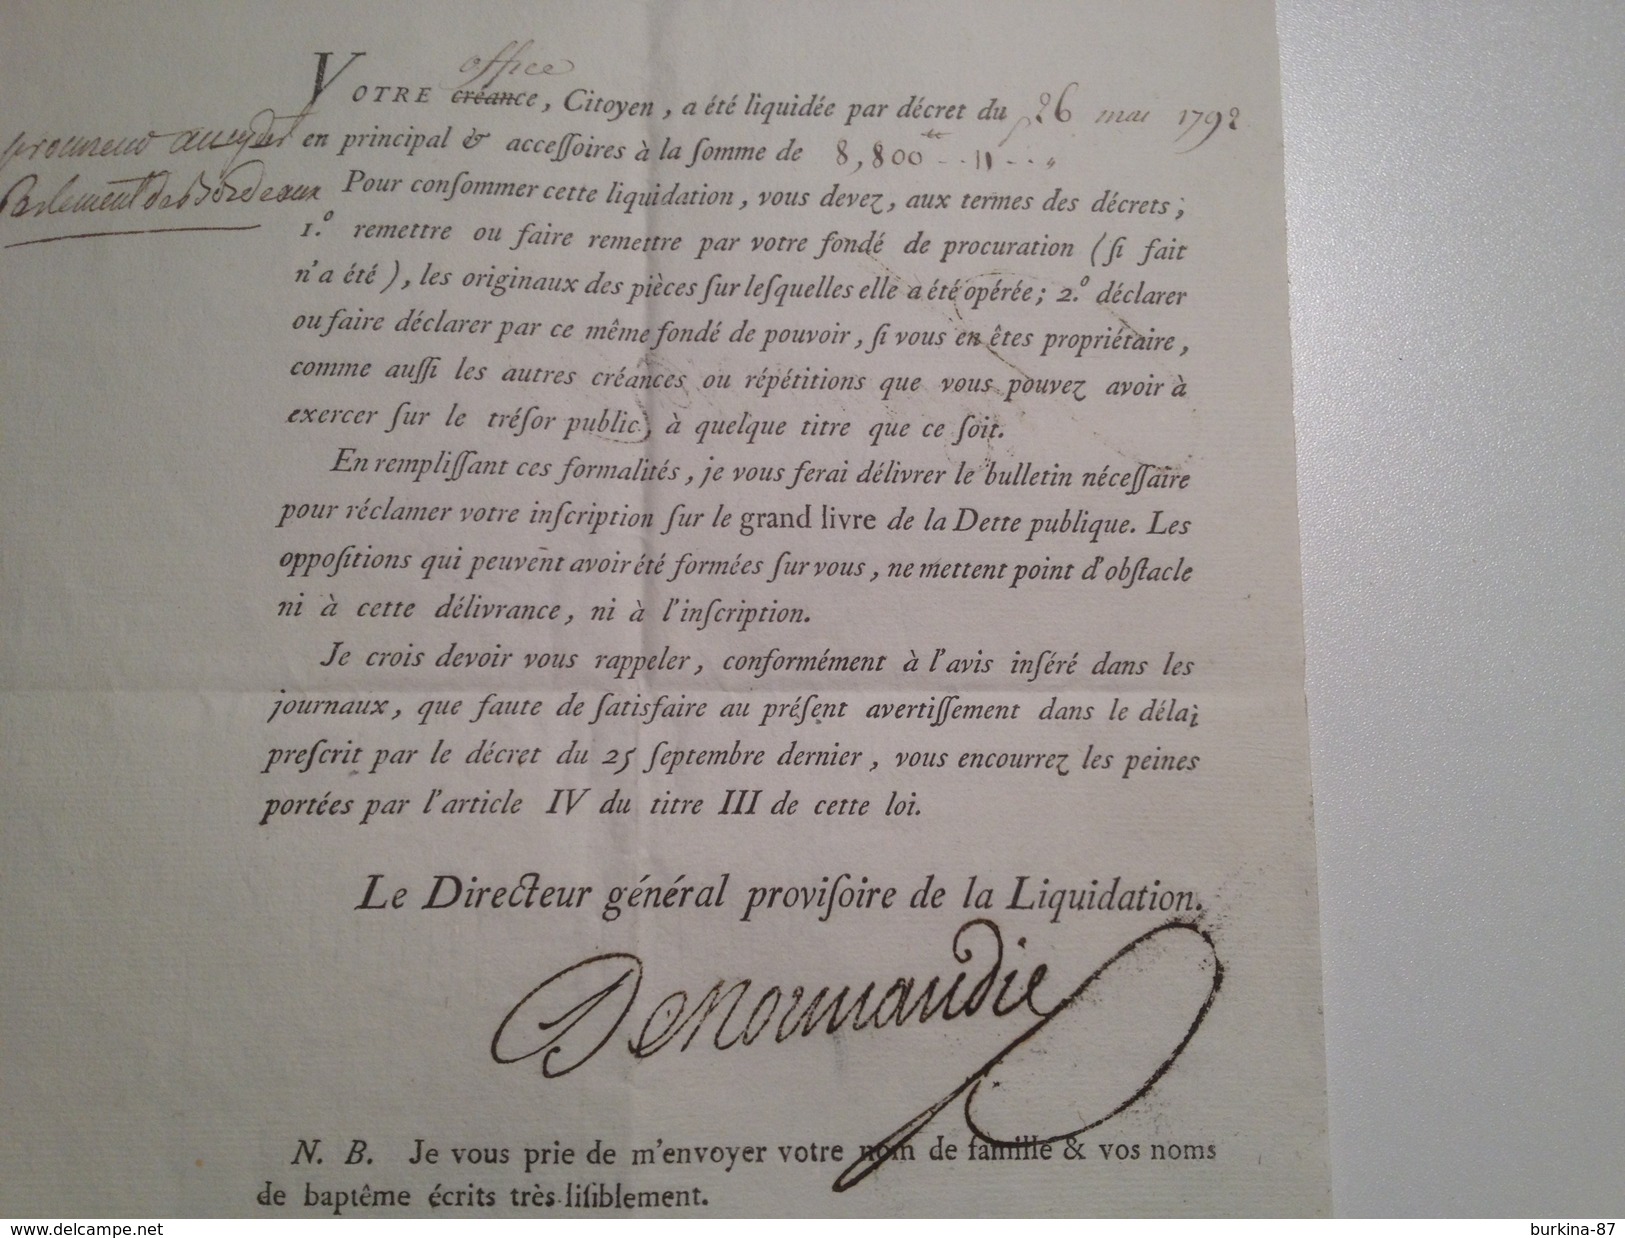 office
VOTRE créance, Citoyen, a été liquidée par décret du 26 mai 1792
procureur au cydt en principal & acceſſoires à la ſomme de 8,800 tt .. 11 .. "
Parlement de Bordeaux Pour conſommer cette liquidation, vous devez, aux termes des décrets;
1.° remettre ou faire remettre par votre fondé de procuration (ſi fait
n'a été), les originaux des pièces ſur leſquelles elle a été opérée; 2.° déclarer
ou faire déclarer par ce même fondé de pouvoir, ſi vous en êtes propriétaire,
comme auſſi les autres créances ou répétitions que vous pouvez avoir à
exercer ſur le tréſor public, à quelque titre que ce ſoit.
En rempliſſant ces formalités, je vous ferai délivrer le bulletin néceſſaire
pour réclamer votre inſcription ſur le grand livre de la Dette publique. Les
oppoſitions qui peuvent avoir été formées ſur vous, ne mettent point d'obſtacle
ni à cette délivrance, ni à l'inſcription.
Je crois devoir vous rappeler, conformément à l'avis inſéré dans les
journaux, que faute de ſatisfaire au préſent avertiſſement dans le délai
preſcrit par le décret du 25 ſeptembre dernier, vous encourrez les peines
portées par l'article IV du titre III de cette loi.
Le Directeur général proviſoire de la Liquidation.
DeNormandie
N. B. Je vous prie de m'envoyer votre nom de famille & vos noms
de baptême écrits très-liſiblement.
www.delcampe.net burkina-87